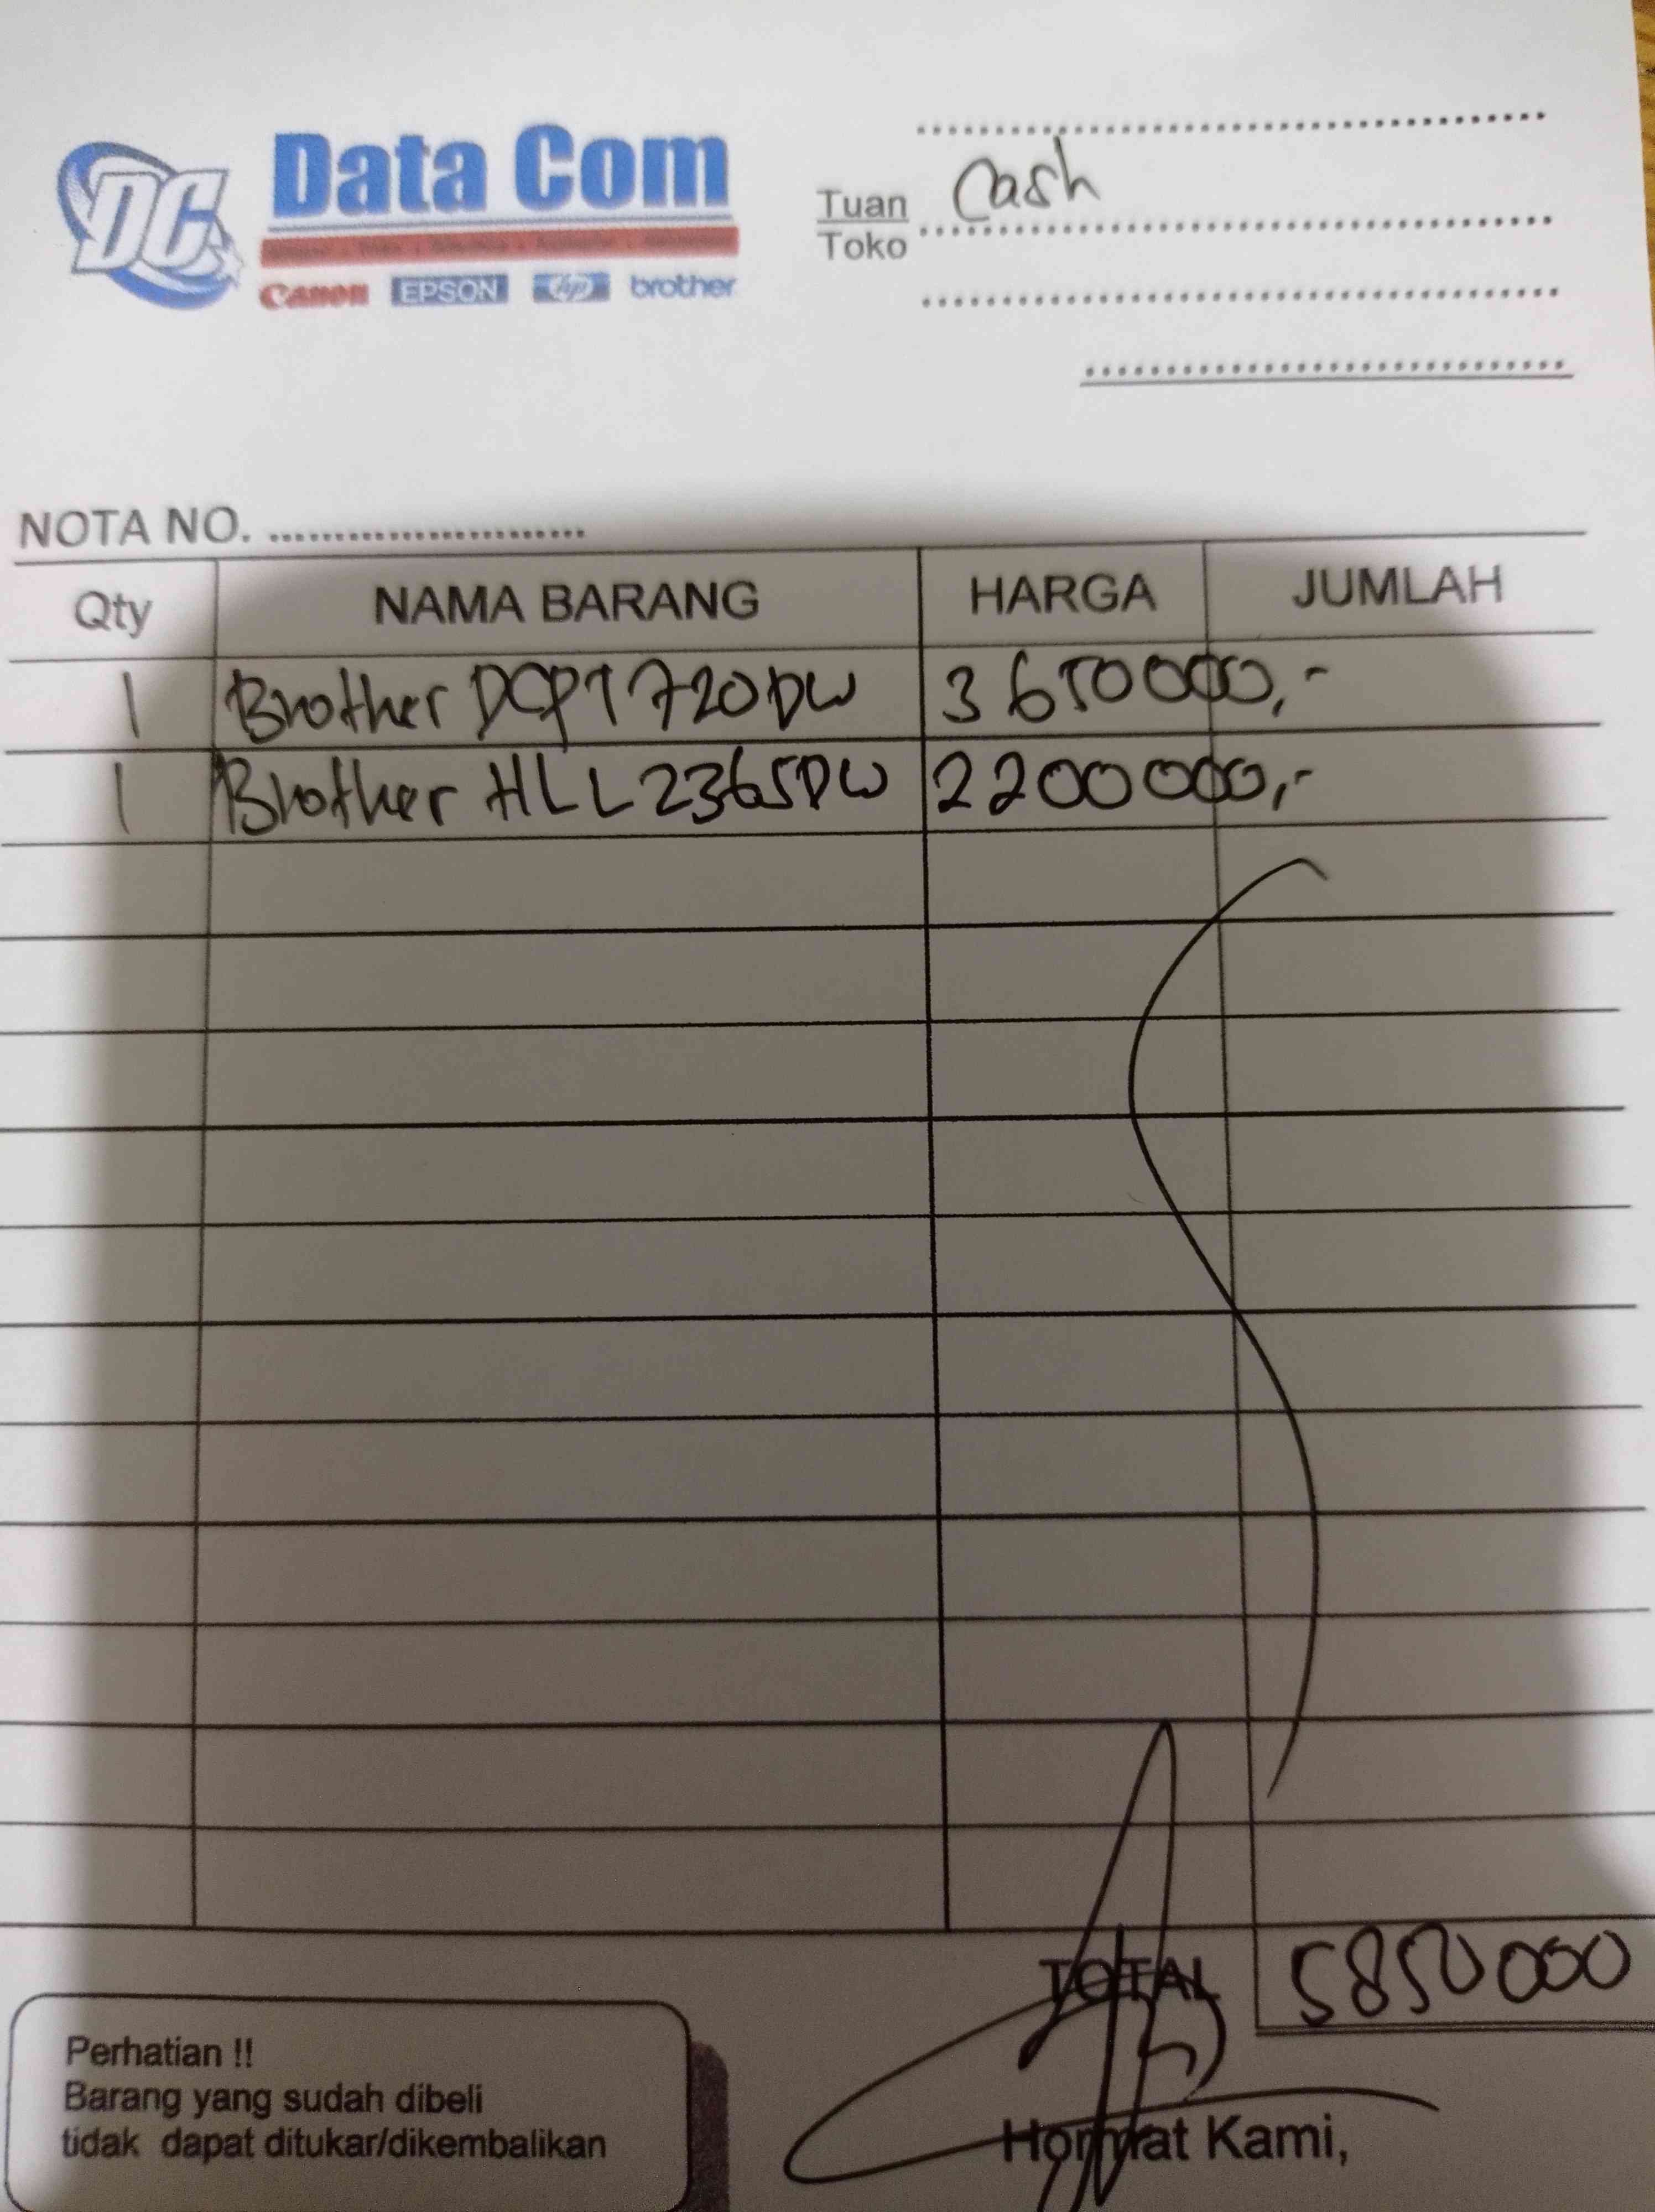 DC
Data Com
Canon EPSON hp brother
Tuan Cash
Toko
NOTA NO.
Qty NAMA BARANG HARGA JUMLAH
1 Brother DCPT720DW 3650000,-
1 Brother HLL2365DW 2200000,-
TOTAL 5850000
Perhatian !!
Barang yang sudah dibeli
tidak dapat ditukar/dikembalikan
Hormat Kami,